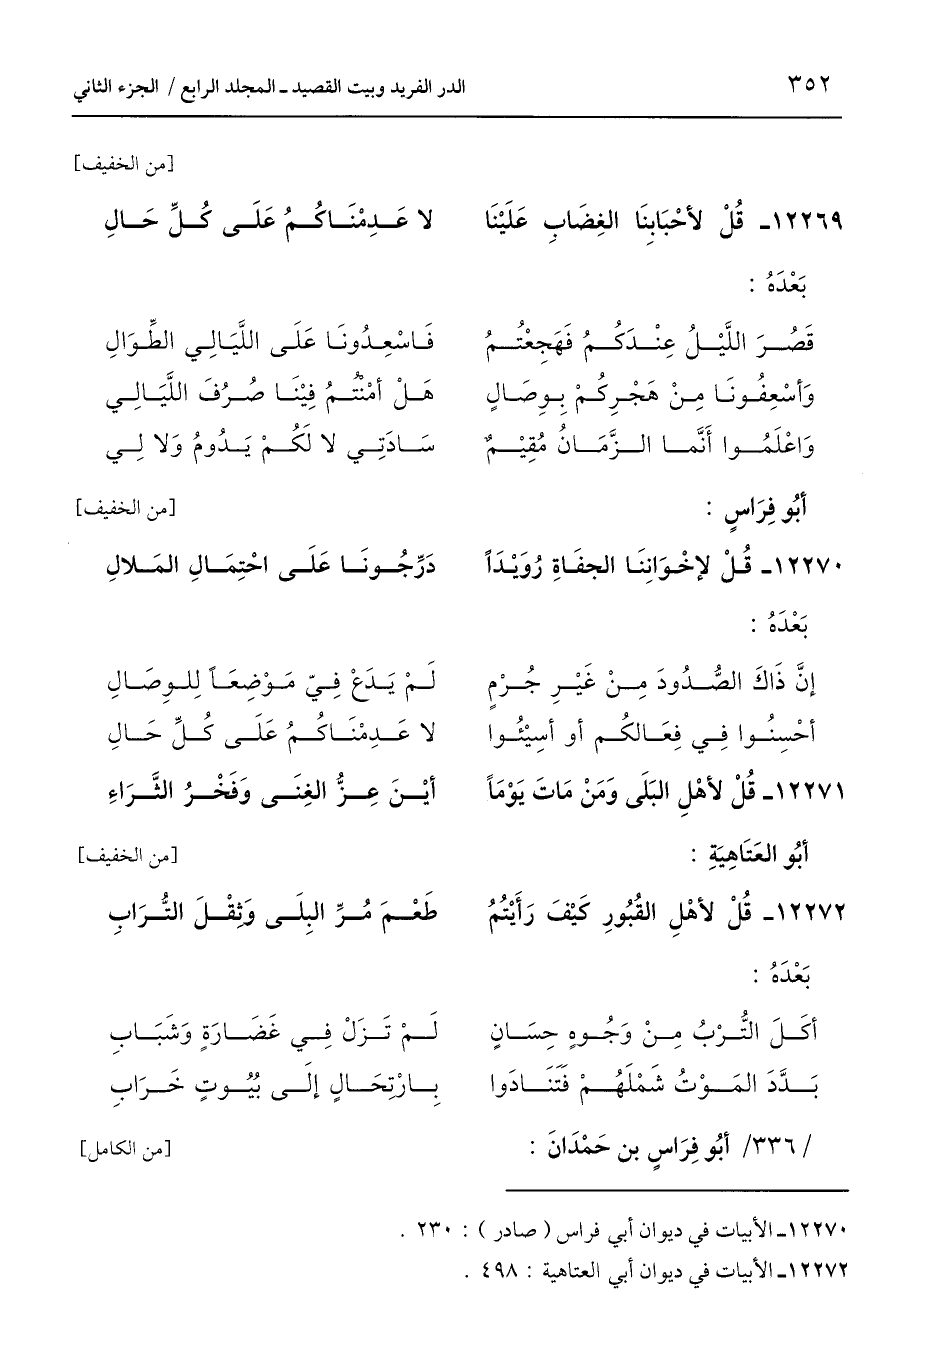 ٣٥٢ الدر الفريد وبيت القصيد ـ المجلد الرابع / الجزء الثاني
[من الخفيف]
١٢٢٦٩ـ قُلْ لأحْبَابِنَا الغِضَابِ عَلَيْنَا لا عَدِمْنَاكُمُ عَلَى كُلِّ حَالِ
بَعْدَهُ :
قَصُرَ اللَّيْلُ عِنْدَكُمُ فَهَجِعْتُمُ فَاسْعِدُونَا عَلَى اللَّيَالِي الطِّوَالِ
وَأسْعِفُونَا مِنْ هَجْرِكُمْ بِوِصَالٍ هَلْ أمْنْتُمُ فِيْنَا صُرُفَ اللَّيَالِي
وَاعْلَمُوا أنَّمَا الزَّمَانُ مُقِيْمٌ سَادَتِي لا لَكُمْ يَدُومُ وَلا لِي
أبُو فِرَاسٍ : [من الخفيف]
١٢٢٧٠ـ قُلْ لإخْوَانِنَا الجفَاةِ رُوَيْدَاً دَرِّجُونَا عَلَى احْتِمَالِ المَلالِ
بَعْدَهُ :
إنَّ ذَاكَ الصُّدُودَ مِنْ غَيْرِ جُرْمٍ لَمْ يَدَعْ فِيّ مَوْضِعَاً لِلوِصَالِ
أحْسِنُوا فِي فِعَالكُم أو أسِيْئُوا لا عَدِمْنَاكُمُ عَلَى كُلِّ حَالِ
١٢٢٧١ـ قُلْ لأهْلِ البَلَى وَمَنْ مَاتَ يَوْمَاً أيْنَ عِزُّ الغِنَى وَفَخْرُ الثَّرَاءِ
أبُو العَتَاهِيَةِ : [من الخفيف]
١٢٢٧٢ـ قُلْ لأهْلِ القُبُورِ كَيْفَ رَأيْتُمُ طَعْمَ مُرِّ البِلَى وَثِقْلَ التُّرَابِ
بَعْدَهُ :
أكَلَ التُّرْبُ مِنْ وَجُوهٍ حِسَانٍ لَمْ تَزَلْ فِي غَضَارَةٍ وَشَبَابِ
بَدَّدَ المَوْتُ شَمْلَهُمْ فَتَنَادَوا بِارْتِحَالٍ إلَى بُيُوتٍ خَرَابِ
/ ٣٣٦/ أبُو فِرَاسٍ بن حَمْدَانَ : [من الكامل]
١٢٢٧٠ـ الأبيات في ديوان أبي فراس ( صادر ) : ٢٣٠ .
١٢٢٧٢ـ الأبيات في ديوان أبي العتاهية : ٤٩٨ .